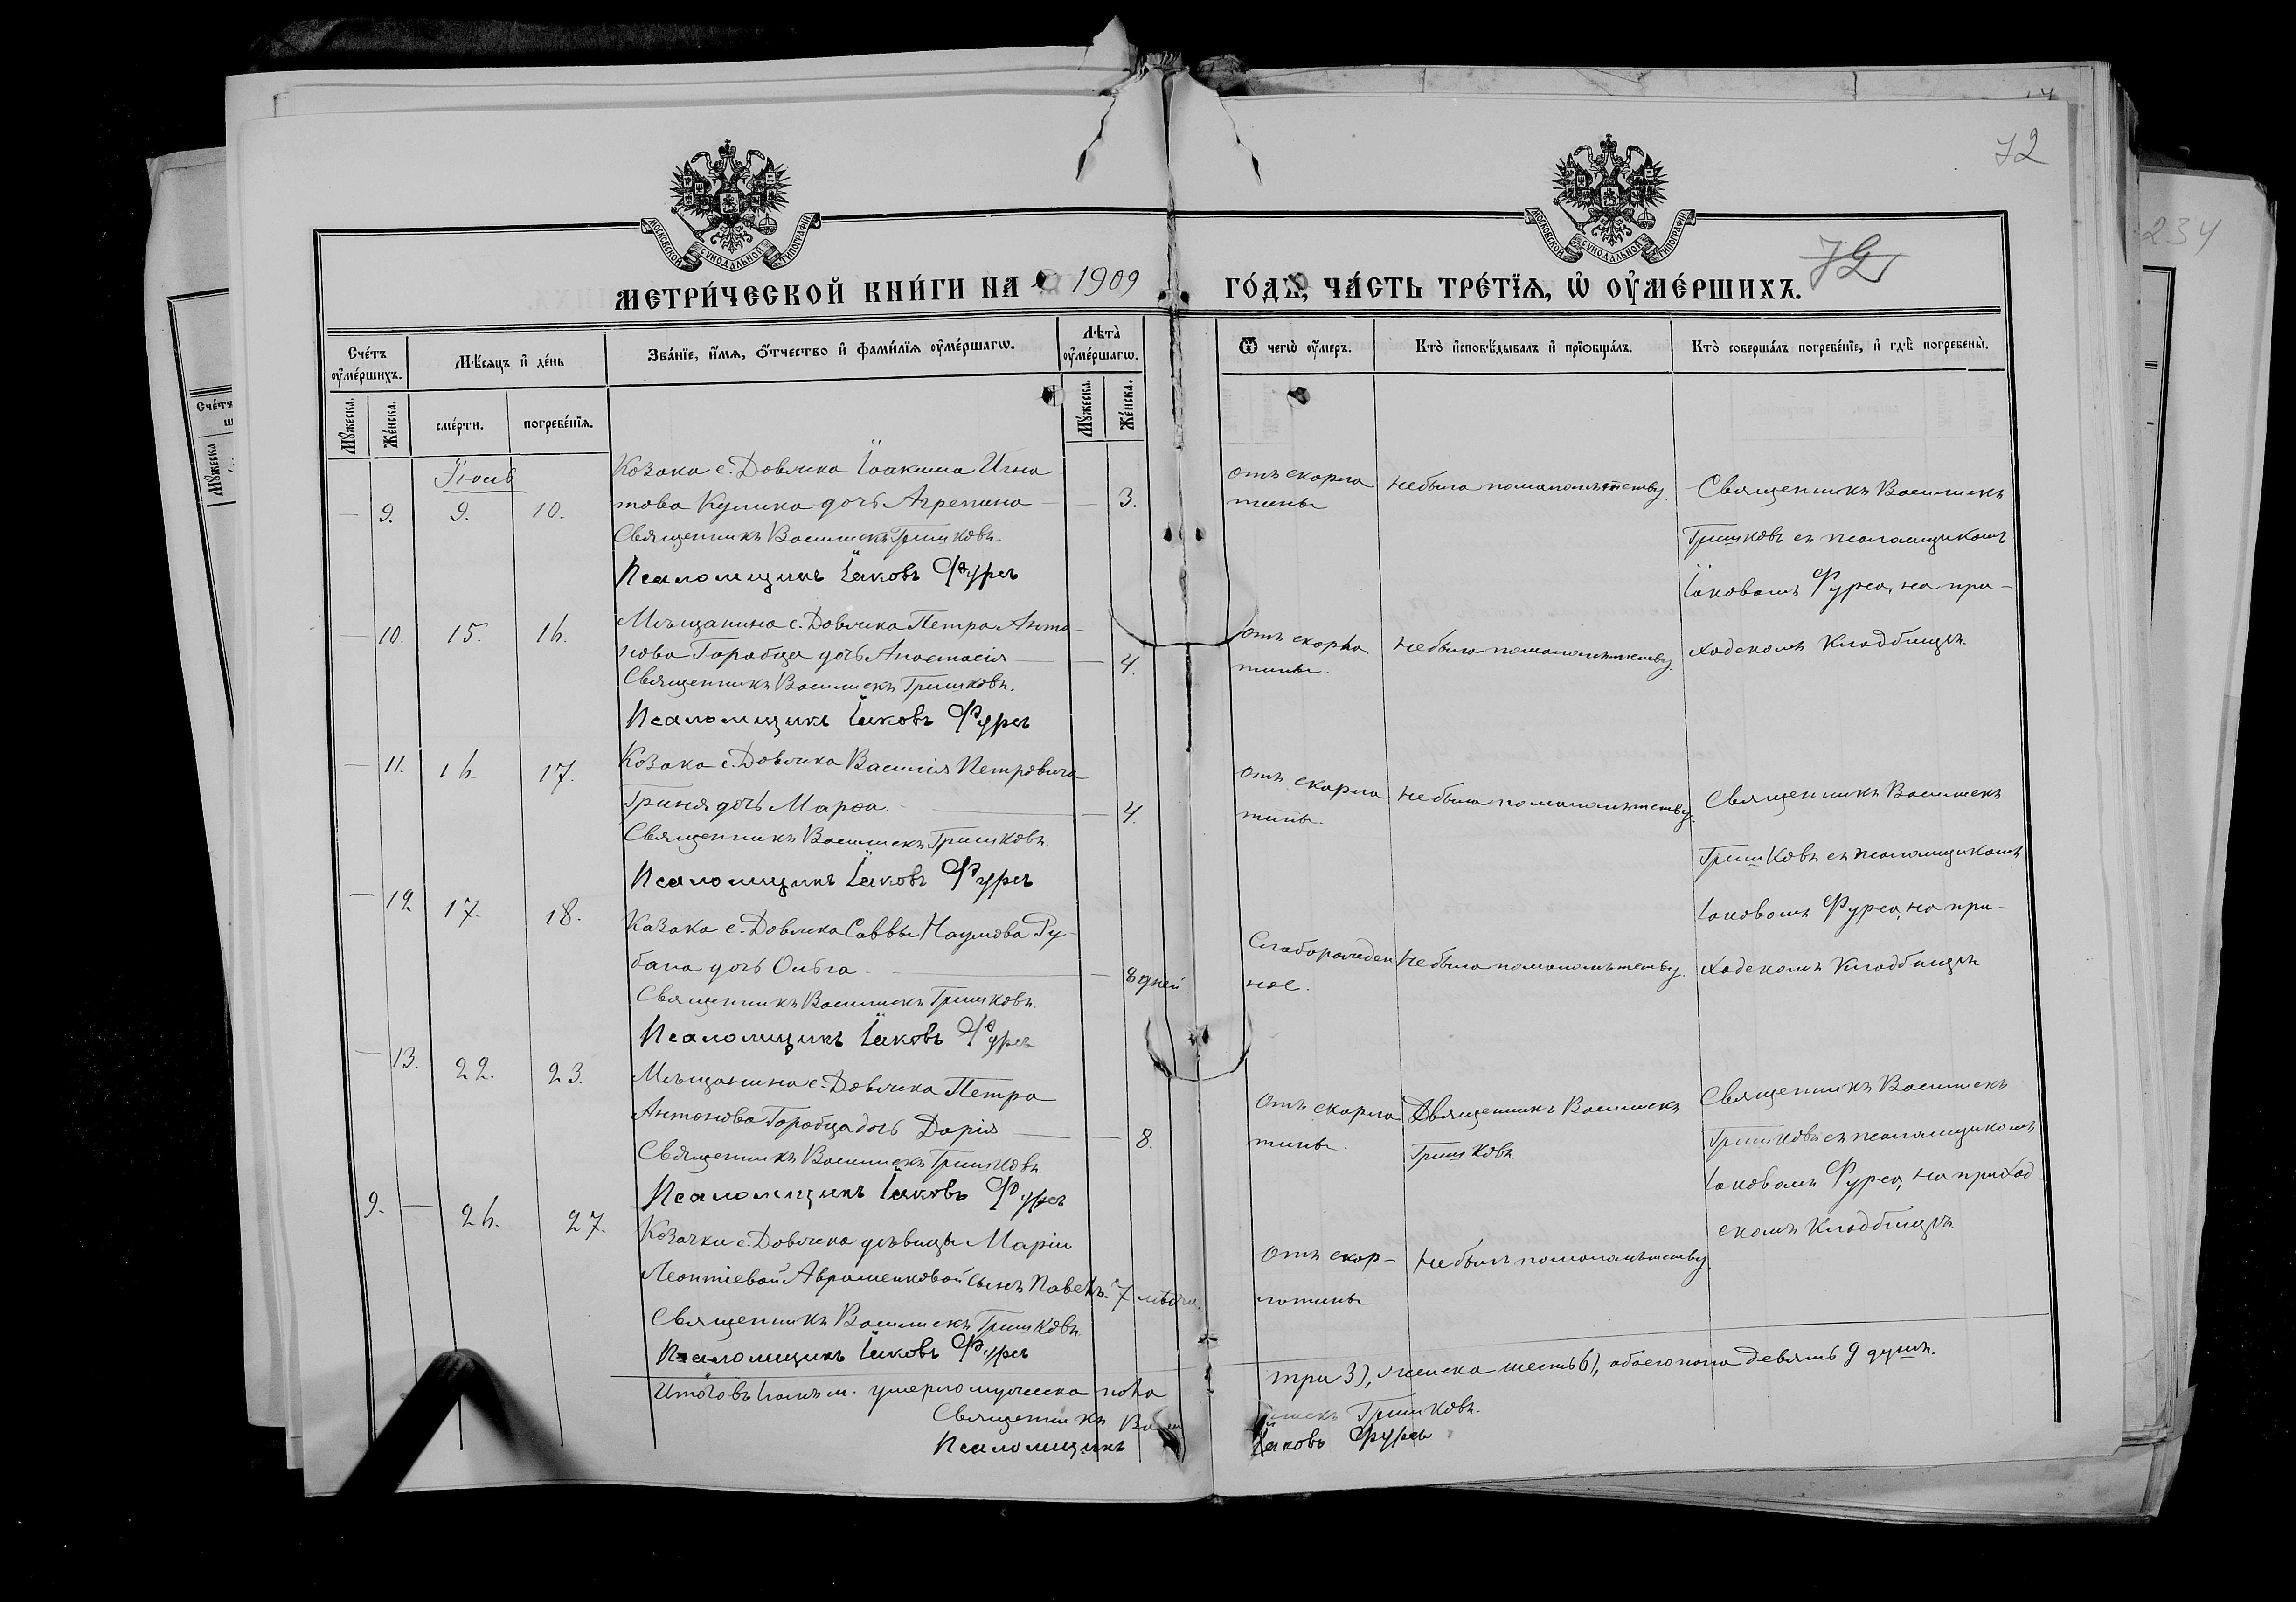 72
234
МОСКОВСКОЙ СѴНОДАЛЬНОЙ ТИПОГРАФІИ
МОСКОВСКОЙ СѴНОДАЛЬНОЙ ТИПОГРАФІИ
72
МЕТРИ́ЧЕСКОЙ КНИ́ГИ НА 1909 ГО́ДЪ, ЧА́СТЬ ТРЕ́ТЇѦ, Ѡ҆ ОУ҆МЕ́РШИХЪ.
Сче́тъ оу҆ме́ршихъ.
Мꙋ́жеска.
Же́нска.
Мѣ́сяцъ и҆ де́нь
сме́рти.
погребе́нїѧ.
Зва́нїе, и҆́мѧ, ѻ҆́тчество и҆ фами́лїѧ оу҆ме́ршагѡ.
Лѣ̑та̀ оу҆ме́ршагѡ.
Мꙋ́жеска.
Же́нска.
Ѿ чегѡ̀ оу҆́меръ.
Кто̀ и҆сповѣ́дывалъ и҆ прїѡбща́лъ.
Кто̀ соверша́лъ погребе́нїе, и҆ гдѣ̀ погребены̀.
Сче́тъ
Мꙋ́жеска
Іюль
— 9. 9. 10. Козака с. Довжика Іоакима Игна-
това Кулика дочь Агрепина — — 3.
Священникъ Василискъ Гришковъ
Псаломщикъ Іаковъ Фурсъ
отъ скарла
тины
не была по малолѣтству.
Священникъ Василискъ
Гришковъ съ псаломщикомъ
Іаковомъ Фурса, на при-
ходскомъ кладбищѣ.
— 10. 15. 16. Мѣщанина с. Довжика Петра Анто-
нова Горобца дочь Анастасія — — 4.
Священникъ Василискъ Гришковъ.
Псаломщикъ Іаковъ Фурсъ
отъ скарла
тины.
не была по малолѣтству.
— 11. 16. 17. Козака с. Довжика Василія Петровича
Гриня дочь Марѳа. — — 4.
Священникъ Василискъ Гришковъ.
Псаломщикъ Іаковъ Фурсъ
отъ скарла
тины.
не была по малолѣтству.
Священникъ Василискъ
Гришковъ съ псаломщикомъ
Іаковомъ Фурса, на при-
ходскомъ кладбищѣ
— 12 17. 18. Казака с. Довжика Саввы Наумова Ру-
бана дочь Ольга. — — 8 дней
Священникъ Василискъ Гришковъ.
Псаломщикъ Іаковъ Фурсъ
Слаборожден
ное.
не была по малолѣтству.
— 13. 22. 23. Мѣщанина с. Довжика Петра
Антонова Горобца дочь Дарія — — 8.
Священникъ Василискъ Гришковъ
Псаломщикъ Іаковъ Фурсъ
отъ скарла
тины.
Священникъ Василискъ
Гришковъ.
Священникъ Василискъ
Гришковъ съ псаломщикомъ
Іаковомъ Фурса, на приход-
скомъ кладбищѣ.
9. — 26. 27. Козачки с. Довжика дѣвицы Маріи
Леонтіевой Авраменковой сынъ Павелъ. 7 мѣсяц.
Священникъ Василискъ Гришковъ
Псаломщикъ Іаковъ Фурсъ
отъ скар-
латины
не былъ по малолѣтству.
Итого въ Іюлѣ м. умерло мужеска пола три 3), женска шесть 6), обоего пола девять 9 душъ.
Священникъ Василискъ Гришковъ.
Псаломщикъ Іаковъ Фурсъ